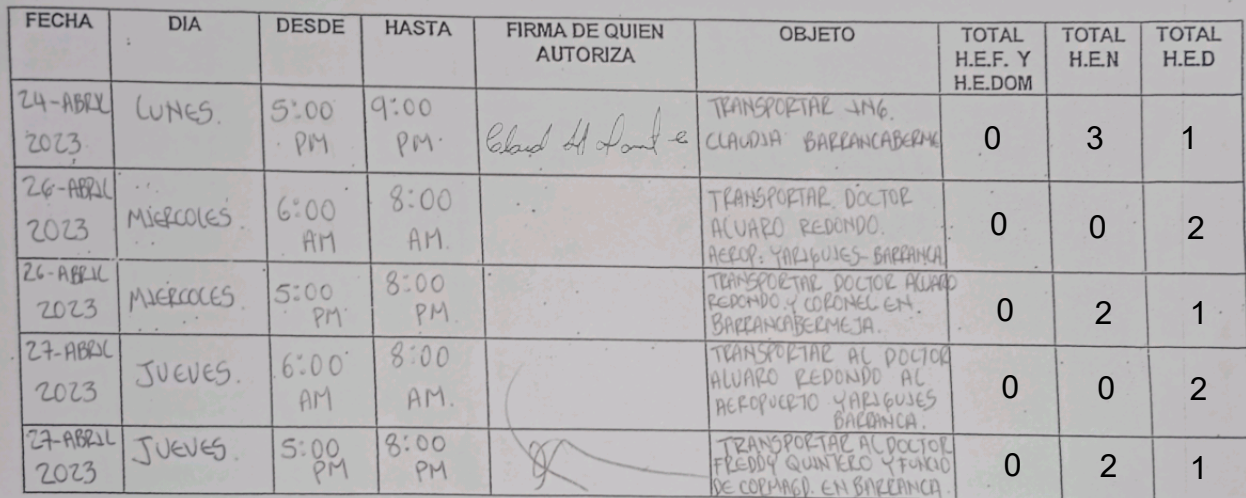 FECHA DIA DESDE HASTA FIRMA DE QUIEN AUTORIZA OBJETO TOTAL H.E.F. Y H.E.DOM TOTAL H.E.N TOTAL H.E.D
24-ABRIL 2023 LUNES. 5:00 PM 9:00 PM. TRANSPORTAR ING. CLAUDIA BARRANCABERME 0 3 1
26-ABRIL 2023 MIERCOLES. 6:00 AM 8:00 AM. TRANSPORTAR DOCTOR ALVARO REDONDO. AEROP: YARIGUIES-BARRANCA. 0 0 2
26-ABRIL 2023 MIERCOLES. 5:00 PM 8:00 PM. TRANSPORTAR DOCTOR ALVARO REDONDO Y CORONEL EN BARRANCABERMEJA. 0 2 1
27-ABRIL 2023 JUEVES. 6:00 AM 8:00 AM. TRANSPORTAR AL DOCTOR ALVARO REDONDO AL AEROPUERTO YARIGUIES BARRANCA. 0 0 2
27-ABRIL 2023 JUEVES. 5:00 PM 8:00 PM TRANSPORTAR AL DOCTOR FREDDY QUINTERO Y FUNCIO DE CORMAGD. EN BARRANCA. 0 2 1